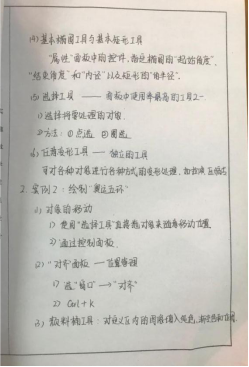 (4)基本椭圆工具与基本矩形工具
"属性"面板中的控件,指定椭圆的"起始角度"、
"结束角度"和"内径"以及矩形的"角半径".
(5)选择工具 —— 面板中使用率最高的工具之一.
①选择将要处理的对象.
②方法: ①点选 ②圈选.
(6)任意变形工具 —— 独立的工具
可对各种对象进行各种方式的变形处理,如拉伸、压缩等
2. 实例2: 绘制"奥运五环"
(1) 对象的移动
1) 使用"选择工具"直接拖对象来随意移动位置.
2)通过控制面板.
(2) "对齐"面板 — 位置整理
1) 选"窗口" → "对齐"
2) Ctrl + K
(3) 颜料桶工具: 对点区内的闭合填入纯色、渐变色和位图